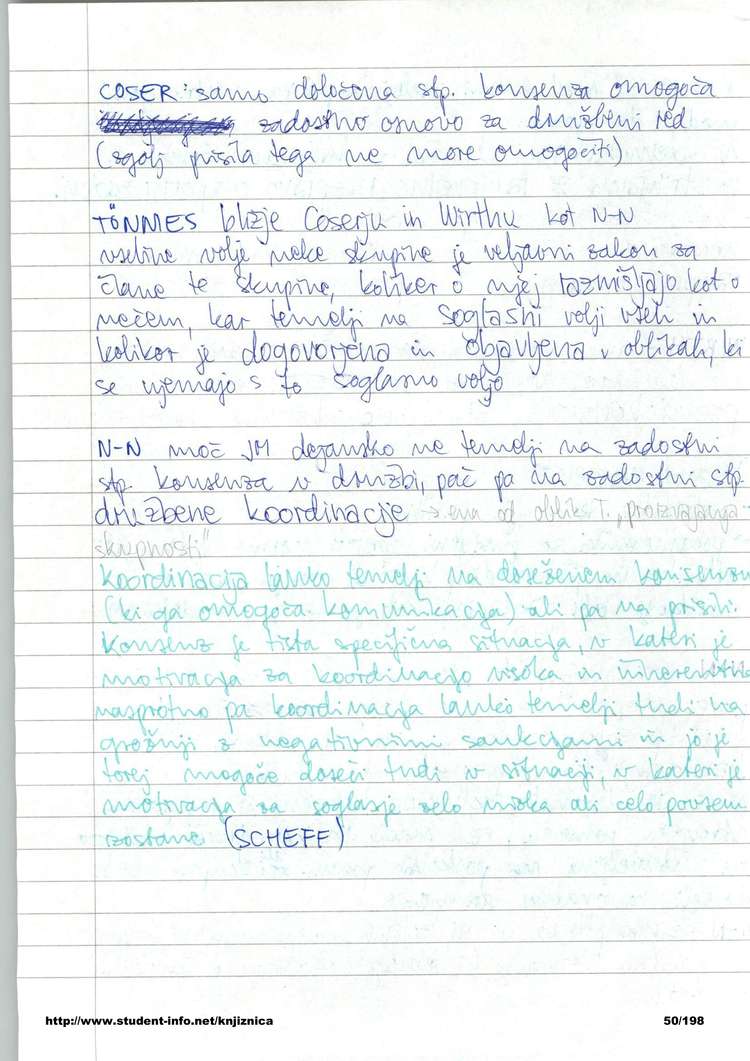 COSER: samo določena stp. konsenza omogoča
zadostno osnovo za družbeni red
(zgolj prisila tega ne more omogočiti)
TÖNNIES bližje Coserju in Wirthu kot N-N
vsebine volje neke skupine je veljavni zakon za
člane te skupine, kolikor o njej razmišljajo kot o
nečem, kar temelji na soglasni volji vseh in
kolikor je dogovorjena in objavljena v oblikah, ki
se ujemajo s to soglasno voljo
N-N moč JM dejansko ne temelji na zadostni
stp. konsenza v družbi, pač pa na zadostni stp.
družbene koordinacije → ena od oblik T. "proizvajanja
skupnosti"
Koordinacija lahko temelji na doseženem konsenzu
(ki ga omogoča komunikacija) ali pa na prisili.
Konsenz je tista specifična situacija, v kateri je
motivacija za koordinacijo visoka in inherentna
nasprotno pa koordinacija lahko temelji tudi na
grožnji z negativnimi sankcijami in jo je
torej mogoče doseči tudi v situaciji, v kateri je
motivacija za soglasje zelo nizka ali celo povsem
izostane (SCHEFF)
http://www.student-info.net/knjiznica
50/198